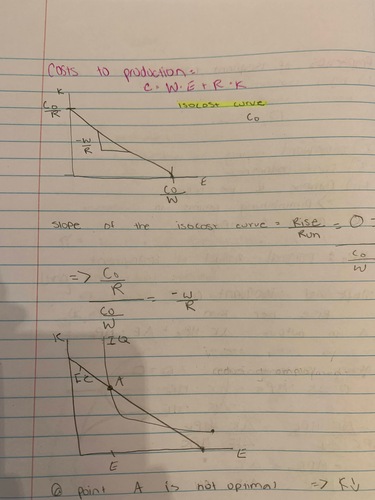 Costs to production:
C = W · E + R · K
isocost curve
K
C0
C0/R
-W/R
C0/W
E
slope of the isocost curve = Rise/Run = 0 -
C0/W
=> C0/R / C0/W = -W/R
K
IQ
EC
A
E
E
@ point A is not optimal => K↓